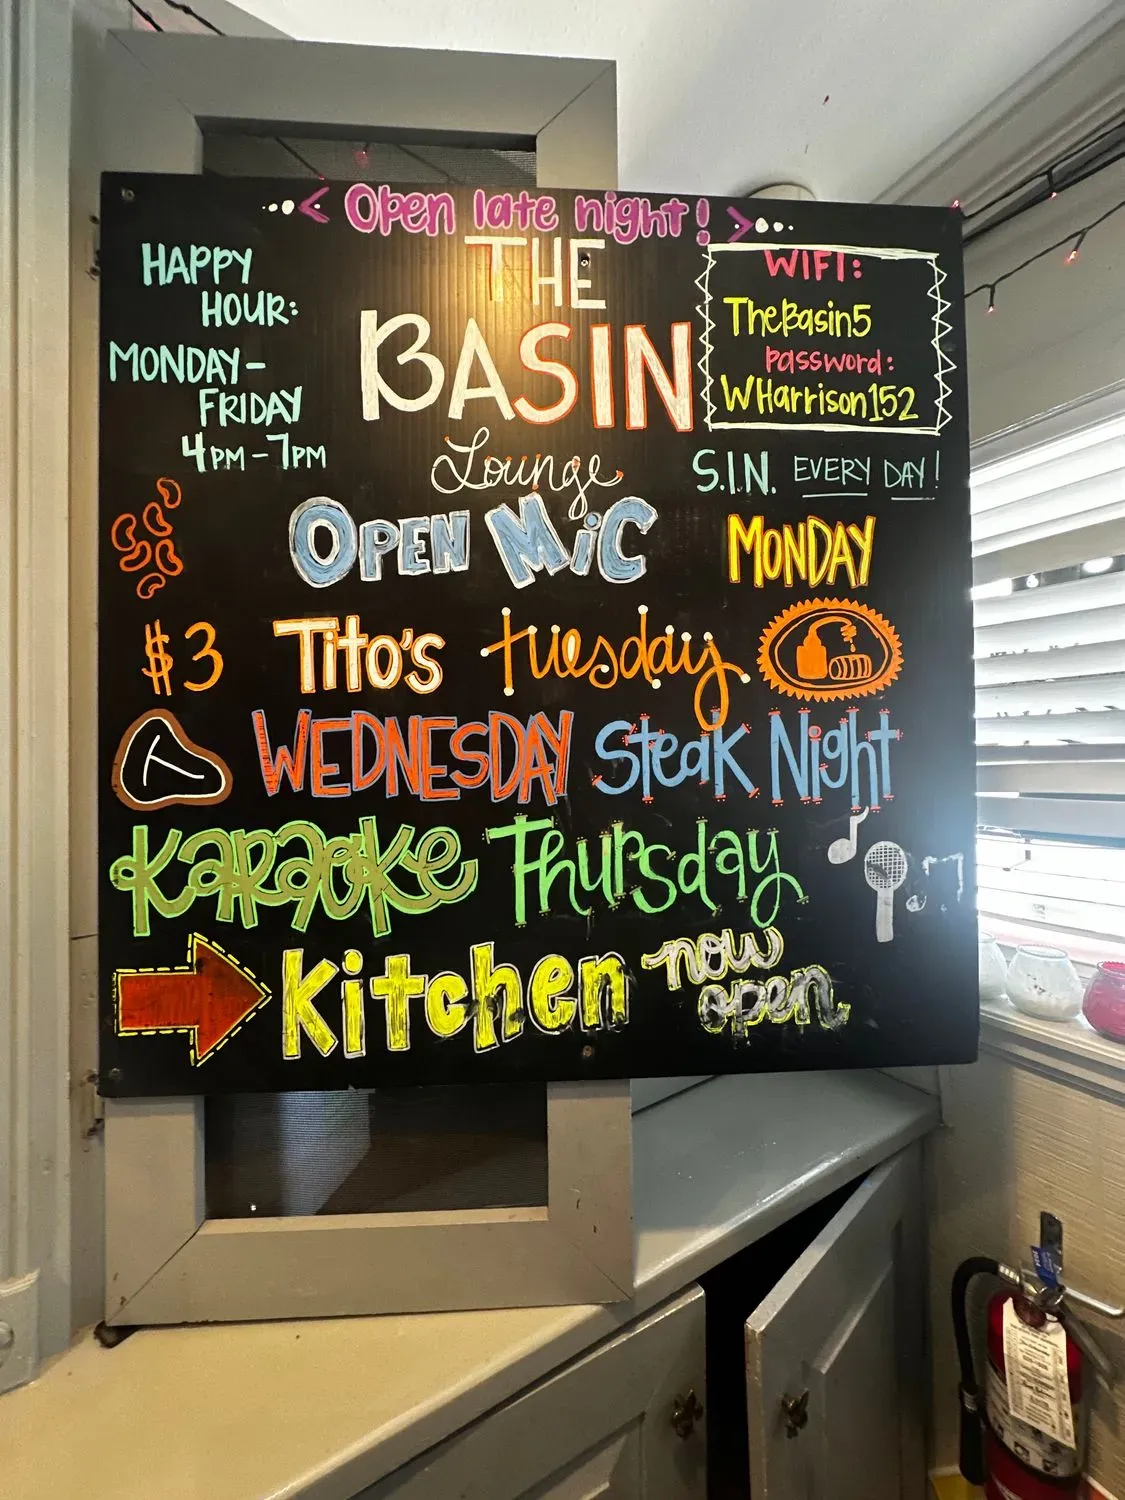 Open late night!
HAPPY
HOUR:
MONDAY-
FRIDAY
4PM-7PM
THE
BASIN
Lounge
WIFI:
TheBasin5
password:
WHarrison152
S.I.N. EVERY DAY!
OPEN MiC MONDAY
$3 Tito's tuesday
WEDNESDAY Steak Night
KARAOKe Thursday
Kitchen now
open